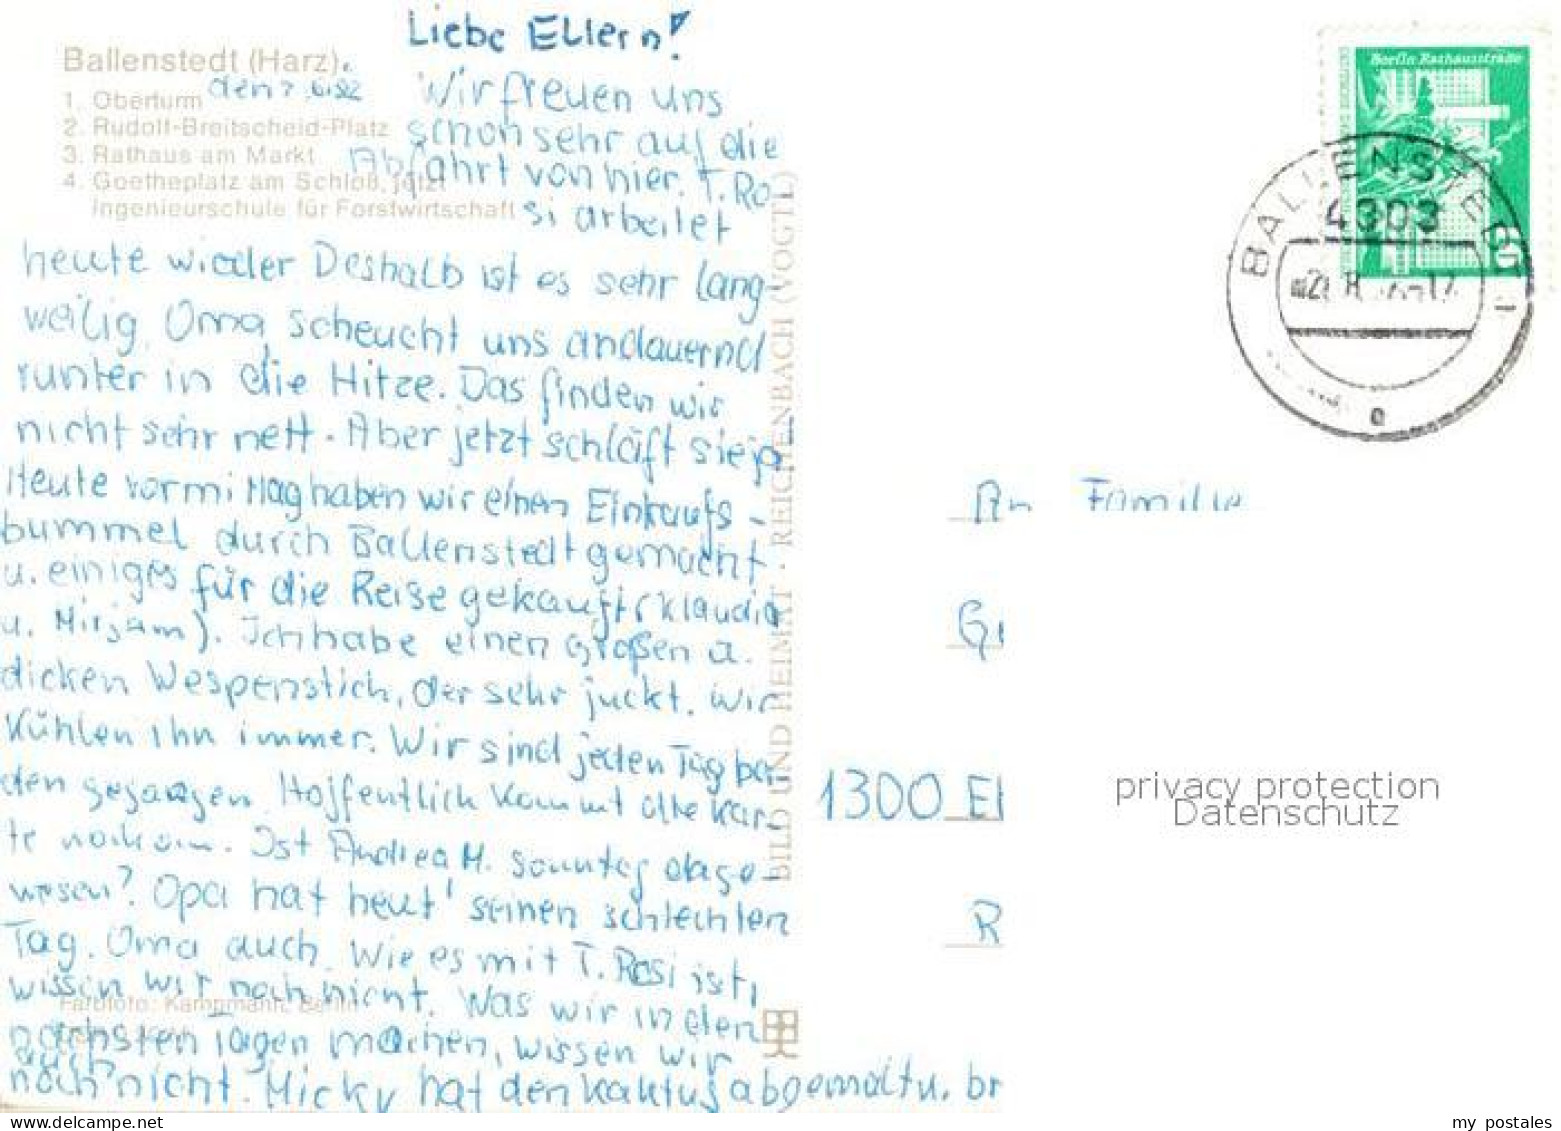 Liebe Eltern!
Ballenstedt (Harz)
1. Oberturm
2. Rudolf-Breitscheid-Platz
3. Rathaus am Markt
4. Goetheplatz am Schloß, jetzt
Ingenieurschule für Forstwirtschaft
Wir freuen uns
schon sehr auf die
Abfahrt von hier. T. Ro
si arbeitet
heute wieder Deshalb ist es sehr lang-
weilig. Oma scheucht uns andauernd
runter in die Hitze. Das finden wir
nicht sehr nett. Aber jetzt schläft sie ja.
Heute vormittag haben wir einen Einkaufs-
bummel durch Ballenstedt gemacht
u. einiges für die Reise gekauft (Klaudia
u. Mirjam). Ich habe einen großen u.
dicken Wespenstich, der sehr juckt. Wir
kühlen ihn immer. Wir sind jeden Tag ba-
den gegangen. Hoffentlich kommt die Kar-
te noch an. Ist Andrea M. Sonntag dage-
wesen? Opa hat heut' seinen schlechten
Tag. Oma auch. Wie es mit T. Rosi ist,
wissen wir noch nicht. Was wir in den
nächsten Tagen machen, wissen wir
auch
noch nicht. Micky hat den Kaktus abgemalt u. br
Farbfoto: Kampmann, Berlin
BILD UND HEIMAT · REICHENBACH (VOGTL)
Berlin Rathausstraße
BALLENSTEDT 1
4303
An Familie
G
1300 E
R
privacy protection
Datenschutz
delcampe.net
my_postales